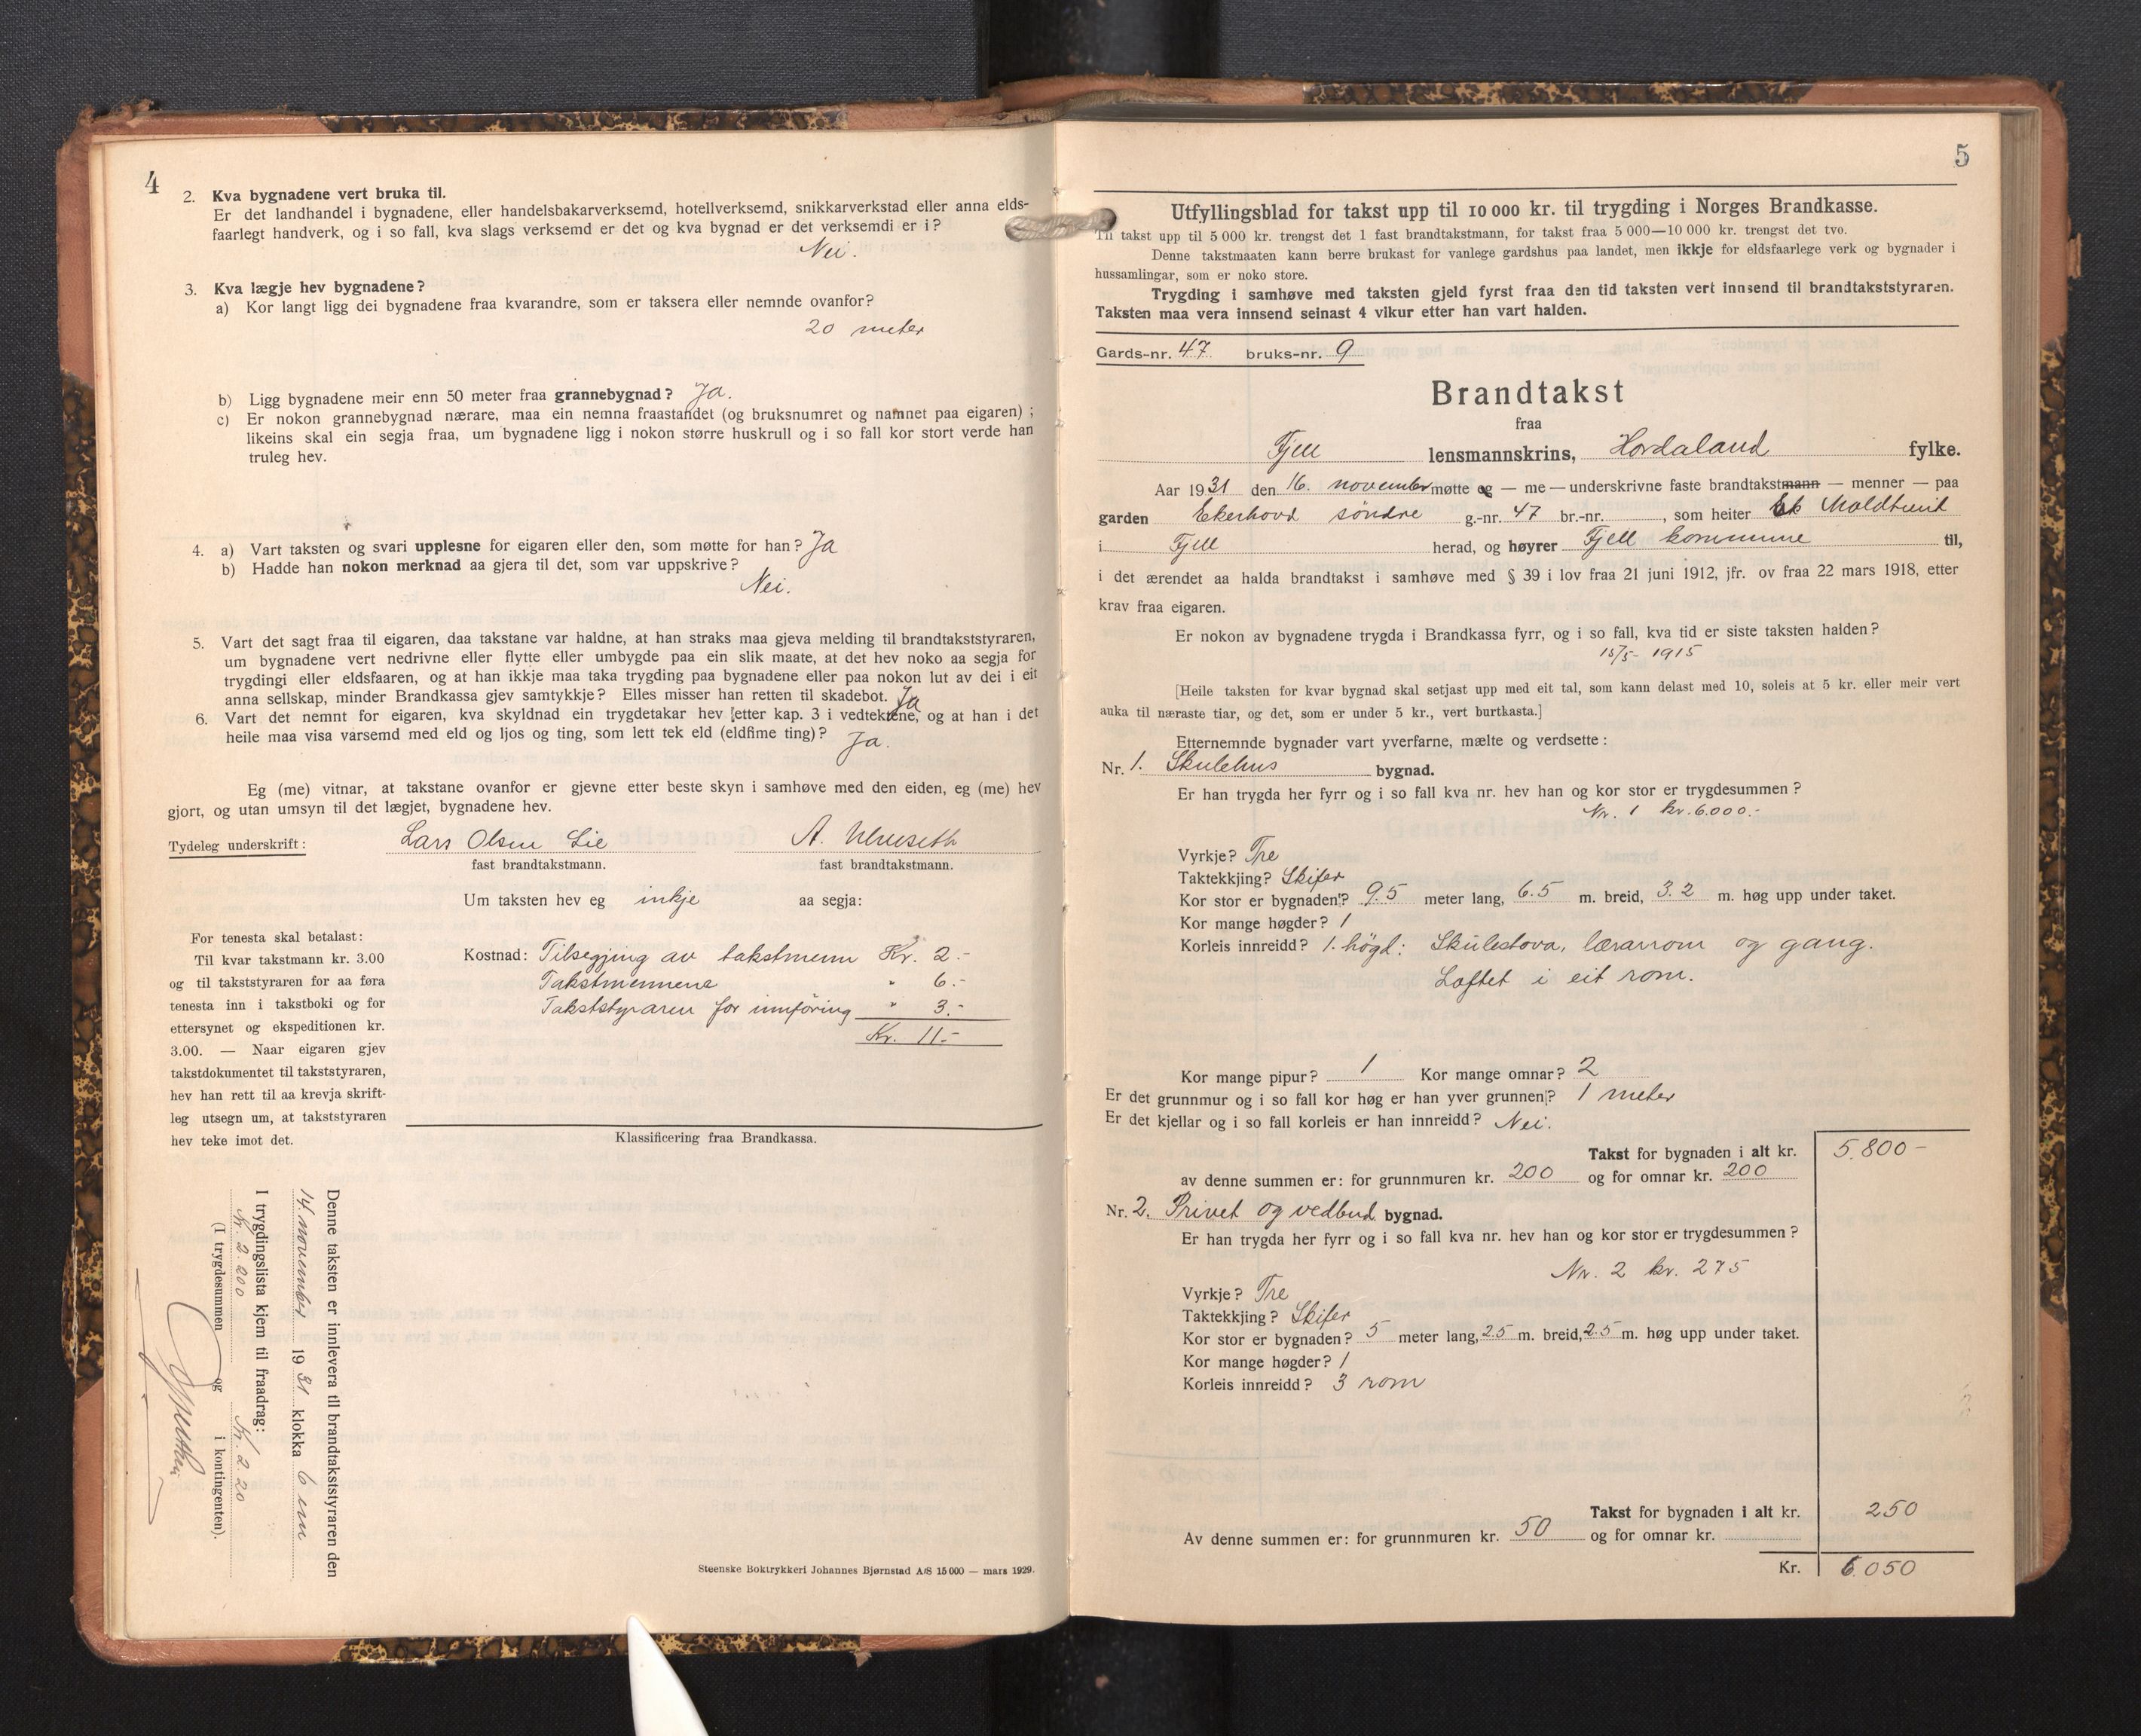 4
2. Kva bygnadene vert bruka til.
Er det landhandel i bygnadene, eller handelsbakarverksemd, hotellverksemd, snikkarverkstad eller anna elds-
faarlegt handverk, og i so fall, kva slags verksemd er det og kva bygnad er det verksemdi er i?
Nei.
3. Kva lægje hev bygnadene?
a) Kor langt ligg dei bygnadene fraa kvarandre, som er taksera eller nemnde ovanfor?
20 meter
b) Ligg bygnadene meir enn 50 meter fraa grannebygnad? Ja.
c) Er nokon grannebygnad nærare, maa ein nemna fraastandet (og bruksnumret og namnet paa eigaren) ;
likeins skal ein segja fraa, um bygnadene ligg i nokon større huskrull og i so fall kor stort verde han
truleg hev.
4. a) Vart taksten og svari upplesne for eigaren eller den, som møtte for han? Ja
b) Hadde han nokon merknad aa gjera til det, som var uppskrive?
Nei.
5. Vart det sagt fraa til eigaren, daa takstane var haldne, at han straks maa gjeva melding til brandtakststyraren,
um bygnadene vert nedrivne eller flytte eller umbygde paa ein slik maate, at det hev noko aa segja for
trygdingi eller eldsfaaren, og at han ikkje maa taka trygding paa bygnadene eller paa nokon lut av dei i eit
anna sellskap, minder Brandkassa gjev samtykkje? Elles misser han retten til skadebot. Ja
6. Vart det nemnt for eigaren, kva skyldnad ein trygdetakar hev [etter kap. 3 i vedtektene, og at han i det
heile maa visa varsemd med eld og ljos og ting, som lett tek eld (eldfime ting)? Ja.
Eg (me) vitnar, at takstane ovanfor er gjevne etter beste skyn i samhøve med den eiden, eg (me) hev
gjort, og utan umsyn til det lægjet, bygnadene hev.
Tydeleg underskrift: Lars Olsen Lie A. Ulveseth
fast brandtakstmann. fast brandtakstmann.
Um taksten hev eg inkje aa segja:
For tenesta skal betalast:
Til kvar takstmann kr. 3.00
og til takststyraren for aa føra
tenesta inn i takstboki og for
ettersynet og ekspeditionen kr.
3.00. — Naar eigaren gjev
takstdokumentet til takststyraren,
hev han rett til aa krevja skrift-
leg utsegn um, at takststyraren
hev teke imot det.
Kostnad: Tilsegjing av takstmenn Kr. 2.-
Takstmennene " 6.-
Takststyraren for innföring " 3.-
Kr. 11.-
Klassificering fraa Brandkassa.
Denne taksten er innlevera til brandtakststyraren den
14 november 1931 klokka 6 em
I trygdingslista kjem til fraadrag:
Kr. 2 200 Kr. 2.20
(I trygdesummen og i kontingenten).
Steenske Boktrykkeri Johannes Bjørnstad A/S 15 000 — mars 1929.
5
Utfyllingsblad for takst upp til 10 000 kr. til trygding i Norges Brandkasse.
Til takst upp til 5 000 kr. trengst det 1 fast brandtakstmann, for takst fraa 5 000—10 000 kr. trengst det tvo.
Denne takstmaaten kann berre brukast for vanlege gardshus paa landet, men ikkje for eldsfaarlege verk og bygnader i
hussamlingar, som er noko store.
Trygding i samhøve med taksten gjeld fyrst fraa den tid taksten vert innsend til brandtakststyraren.
Taksten maa vera innsend seinast 4 vikur etter han vart halden.
Gards-nr. 47 bruks-nr. 9
Brandtakst
fraa
Fjell lensmannskrins, Hordaland fylke.
Aar 1931 den 16. november møtte eg — me — underskrivne faste brandtakstmann — menner — paa
garden Ekerhovd söndre g.-nr. 47 br.-nr. , som heiter Moldtveit
i Fjell herad, og høyrer Fjell kommune til,
i det ærendet aa halda brandtakst i samhøve med § 39 i lov fraa 21 juni 1912, jfr. ov fraa 22 mars 1918, etter
krav fraa eigaren.
Er nokon av bygnadene trygda i Brandkassa fyrr, og i so fall, kva tid er siste taksten halden?
15/5- 1915
[Heile taksten for kvar bygnad skal setjast upp med eit tal, som kann delast med 10, soleis at 5 kr. eller meir vert
auka til næraste tiar, og det, som er under 5 kr., vert burtkasta.]
Etternemnde bygnader vart yverfarne, mælte og verdsette :
Nr. 1. Skulehus bygnad.
Er han trygda her fyrr og i so fall kva nr. hev han og kor stor er trygdesummen ?
Nr. 1 kr. 6.000.-
Vyrkje? Tre
Taktekkjing? Skifer
Kor stor er bygnaden? 9.5 meter lang, 6.5 m. breid, 3.2 m. høg upp under taket.
Kor mange høgder? 1
Korleis innreidd? 1. högd: Skulestova, lærarrom og gang.
Loftet i eit rom.
Kor mange pipur? 1 Kor mange omnar? 2
Er det grunnmur og i so fall kor høg er han yver grunnen? 1 meter
Er det kjellar og i so fall korleis er han innreidd? Nei.
Takst for bygnaden i alt kr. 5.800-
av denne summen er: for grunnmuren kr. 200 og for omnar kr. 200
Nr. 2. Privet og vedbud bygnad.
Er han trygda her fyrr og i so fall kva nr. hev han og kor stor er trygdesummen ?
Nr. 2 kr. 275
Vyrkje? Tre
Taktekkjing? Skifer
Kor stor er bygnaden? 5 meter lang, 2.5 m. breid, 2.5 m. høg upp under taket.
Kor mange høgder? 1
Korleis innreidd? 3 rom
Takst for bygnaden i alt kr. 250
Av denne summen er: for grunnmuren kr. 50 og for omnar kr.
Kr. 6.050